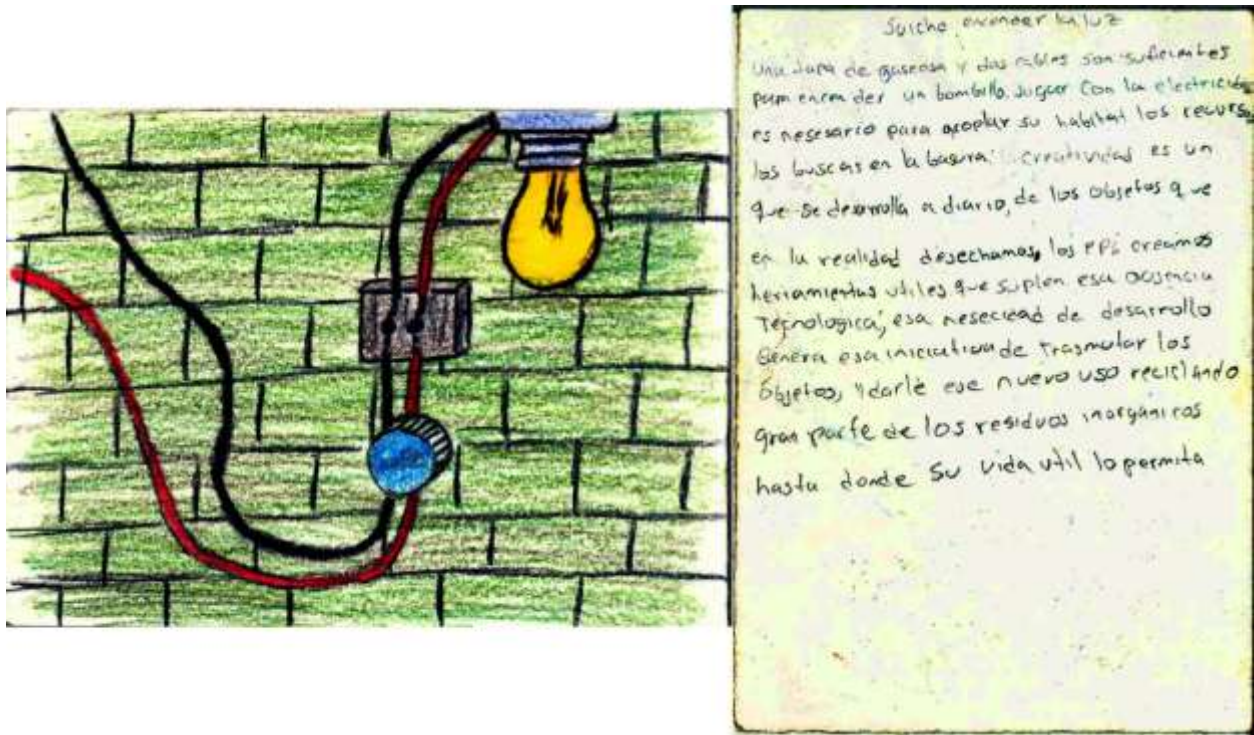 Suiche encender la luz
Una tapa de gaseosa y dos cables son suficientes
para encender un bombillo. Jugar con la electricidad
es nesesario para acoplar su habitat los recursos
los buscas en la basura. creatividad es un
que se desarrolla a diario, de los objetos que
en la realidad desechamos, los PPL creamos
herramientas utiles que suplen esa ausencia
Tecnologica, esa neseciead de desarrollo
Genera esa iniciativa de Trasmutar los
Objetos, Y darle ese nuevo uso reciclando
gran parte de los residuos inorgánicos
hasta donde su vida util lo permita